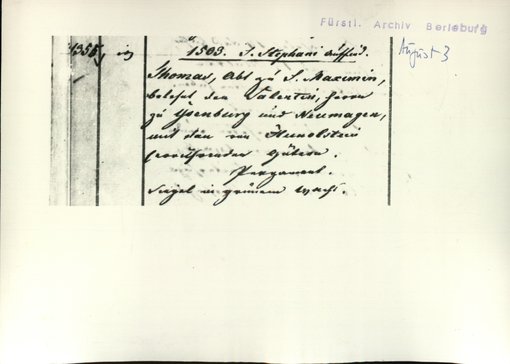 Fürstl. Archiv Berleburg
August 3
1355, 1503. S. Stephani Auffind.
Thomas, Abt zu S. Maximin,
belehnt den Valentin, Herrn
zu Ysenburg und Neumagen,
mit den von Hunolstein
herrührenden Gütern.
Pergament.
Siegel in grünem Wachs.